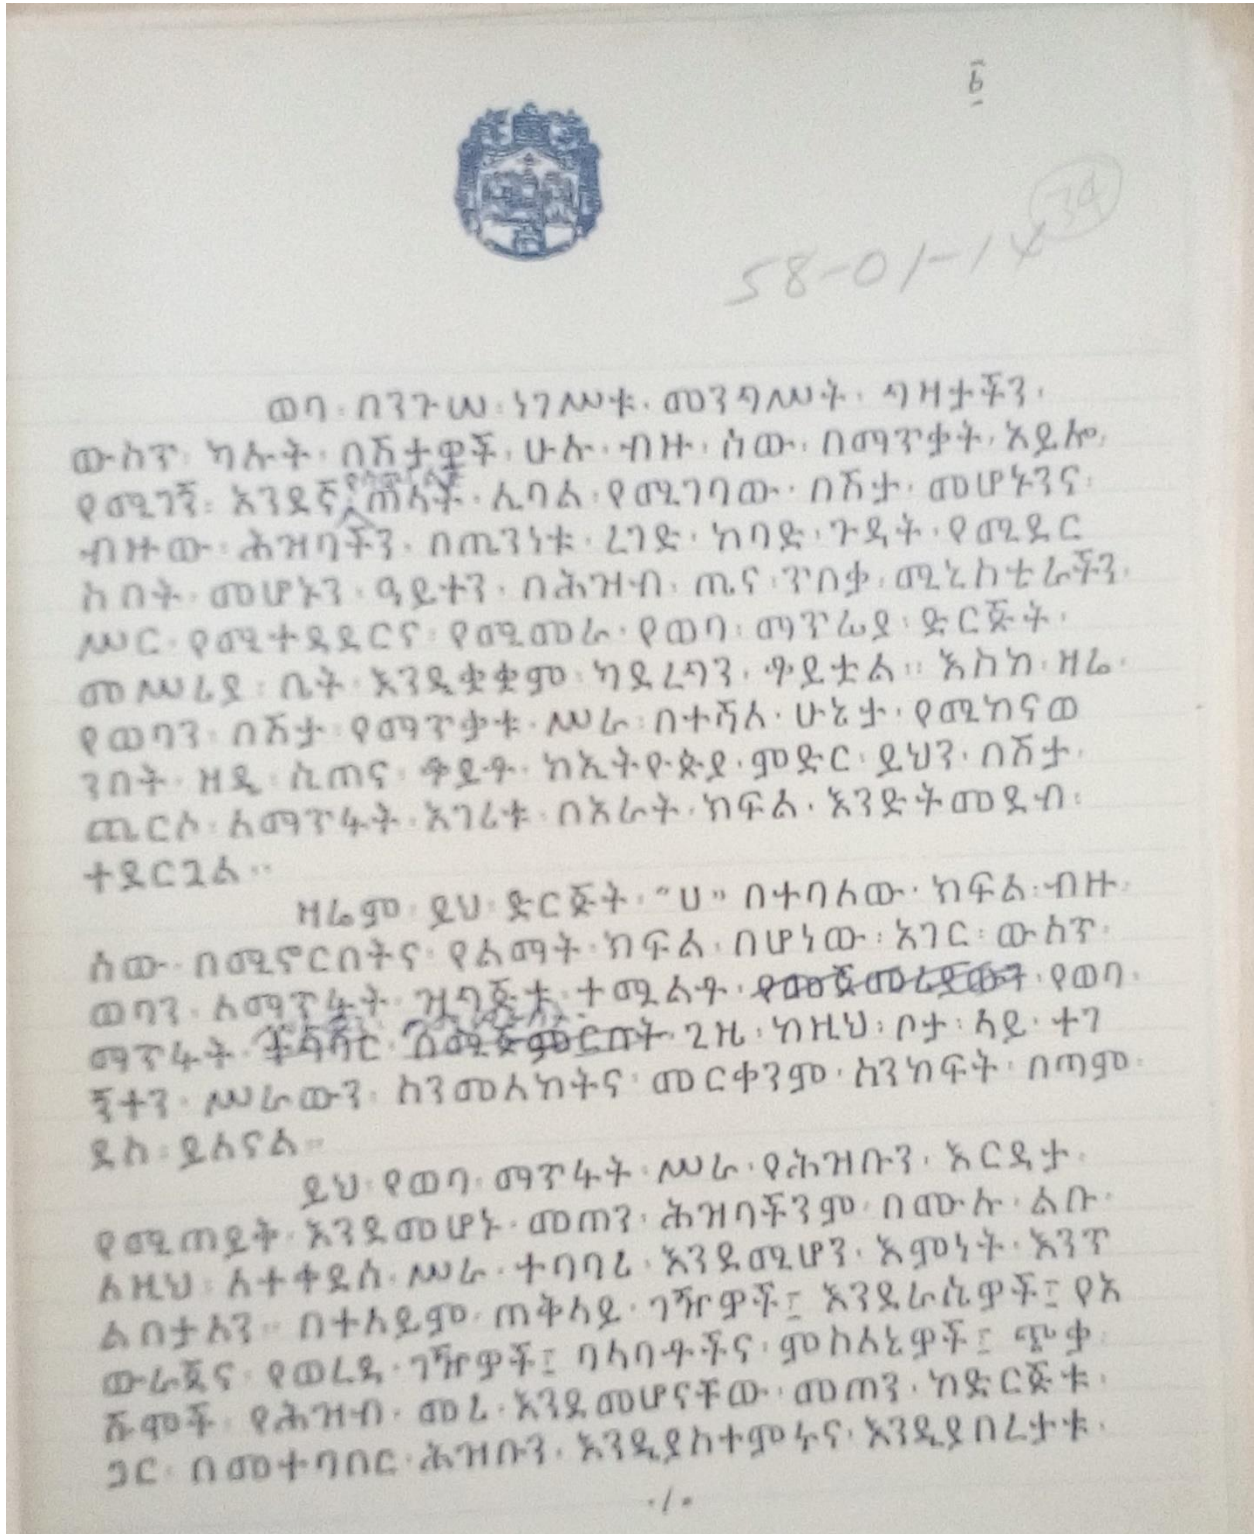 ፩
34
58-01-14
ወባ፡ በንጉሠ፡ ነገሥቱ፡ መንግሥት፡ ግዛታችን፡
ውስጥ፡ ካሉት፡ በሽታዎች፡ ሁሉ፡ ብዙ፡ ሰው፡ በማጥቃት፡ አይሎ፡
የሚገኝ፡ አንደኛ፡ ጠላት፡ ሊባል፡ የሚገባው፡ በሽታ፡ መሆኑንና፡
ብዙው፡ ሕዝባችን፡ በጤንነቱ፡ ረገድ፡ ከባድ፡ ጉዳት፡ የሚደር
ስበት፡ መሆኑን፡ ዓይተን፡ በሕዝብ፡ ጤና፡ ጥበቃ፡ ሚኒስቴራችን፡
ሥር፡ የሚተዳደርና፡ የሚመራ፡ የወባ፡ ማጥፊያ፡ ድርጅት፡
መሥሪያ፡ ቤት፡ እንዲቋቋም፡ ካደረግን፡ ቆይቷል። እስከ፡ ዛሬ፡
የወባን፡ በሽታ፡ የማጥቃቱ፡ ሥራ፡ በተሻለ፡ ሁኔታ፡ የሚከናወ
ንበት፡ ዘዴ፡ ሲጠና፡ ቆይቶ፡ ከኢትዮጵያ፡ ምድር፡ ይህን፡ በሽታ፡
ጨርሶ፡ ለማጥፋት፡ አገሪቱ፡ በአራት፡ ክፍል፡ እንድትመደብ፡
ተደርጓል።
ዛሬም፡ ይህ፡ ድርጅት፡ "ሀ" በተባለው፡ ክፍል፡ ብዙ፡
ሰው፡ በሚኖርበትና፡ የልማት፡ ክፍል፡ በሆነው፡ አገር፡ ውስጥ፡
ወባን፡ ለማጥፋት፡ ዝግጅቱ፡ ተሟልቶ፡ የመጀመሪያውን፡ የወባ፡
ማጥፋት፡ ተግባር፡ በሚጅምርበት፡ ጊዜ፡ ከዚህ፡ ቦታ፡ ላይ፡ ተገ
ኝተን፡ ሥራውን፡ ስንመለከትና፡ መርቀንም፡ ስንከፍት፡ በጣም፡
ደስ፡ ይለናል።
ይህ፡ የወባ፡ ማጥፋት፡ ሥራ፡ የሕዝቡን፡ እርዳታ፡
የሚጠይቅ፡ እንደመሆኑ፡ መጠን፡ ሕዝባችንም፡ በሙሉ፡ ልቡ፡
ለዚህ፡ ለተቀደሰ፡ ሥራ፡ ተባባሪ፡ እንደሚሆን፡ እምነት፡ እንጥ
ልበታለን። በተለይም፡ ጠቅላይ፡ ገዥዎች፤ እንደራሴዎች፤ የአ
ውራጃና፡ የወረዳ፡ ገዥዎች፤ ባላባቶችና፡ ምስለኔዎች፤ ጭቃ፡
ሹሞች፡ የሕዝብ፡ መሪ፡ እንደመሆናቸው፡ መጠን፡ ከድርጅቱ፡
ጋር፡ በመተባበር፡ ሕዝቡን፡ እንዲያስተምሩና፡ እንዲያበረታቱ፡
./.